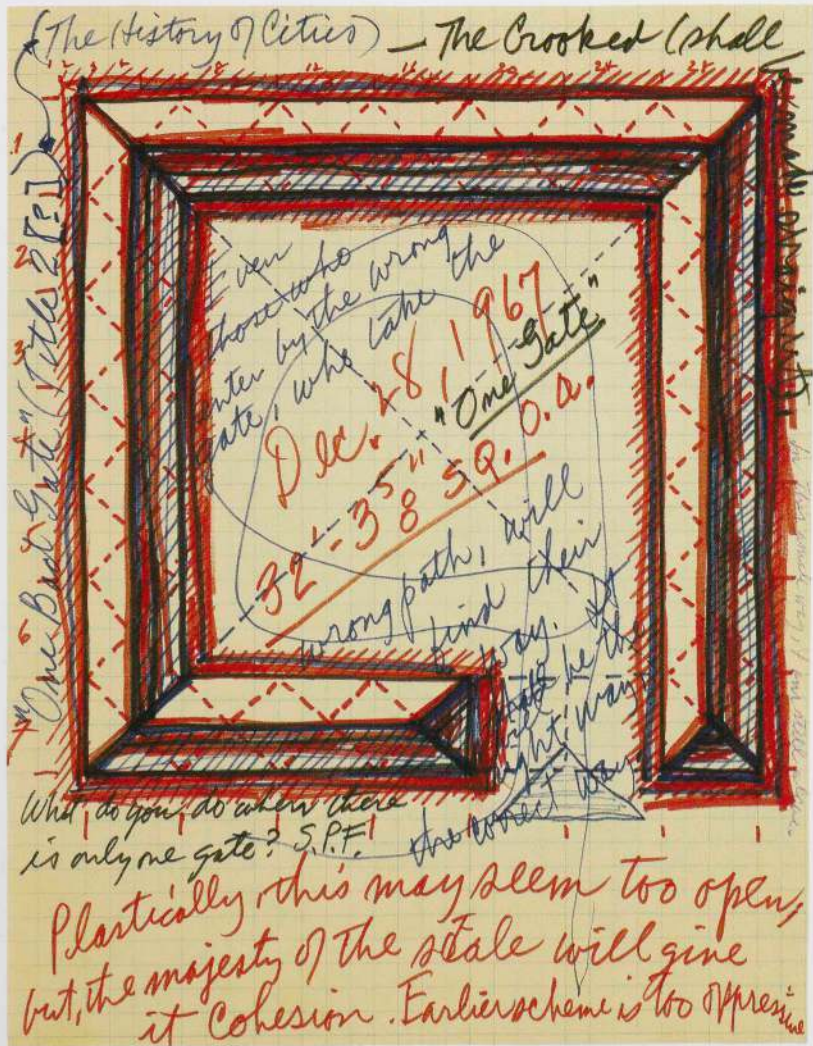 (The History of Cities) — The Crooked (shall
be made straight).
"One Bad Gate" (Title 2 [?])
1 2 4 8 12 16 20 24 28
1
2
3
Even
those who
enter by the wrong
gate, who take the
wrong path, will
find their
way. It
shall be the
right way.
the correct way.
Dec. 28, 1967
"One Gate"
32'-3 5/8" SQ. O.A.
What do you do when there
is only one gate? S.P.F.
Plastically, this may seem too open,
but, the majesty of the scale will give
it cohesion. Earlier scheme is too oppressive